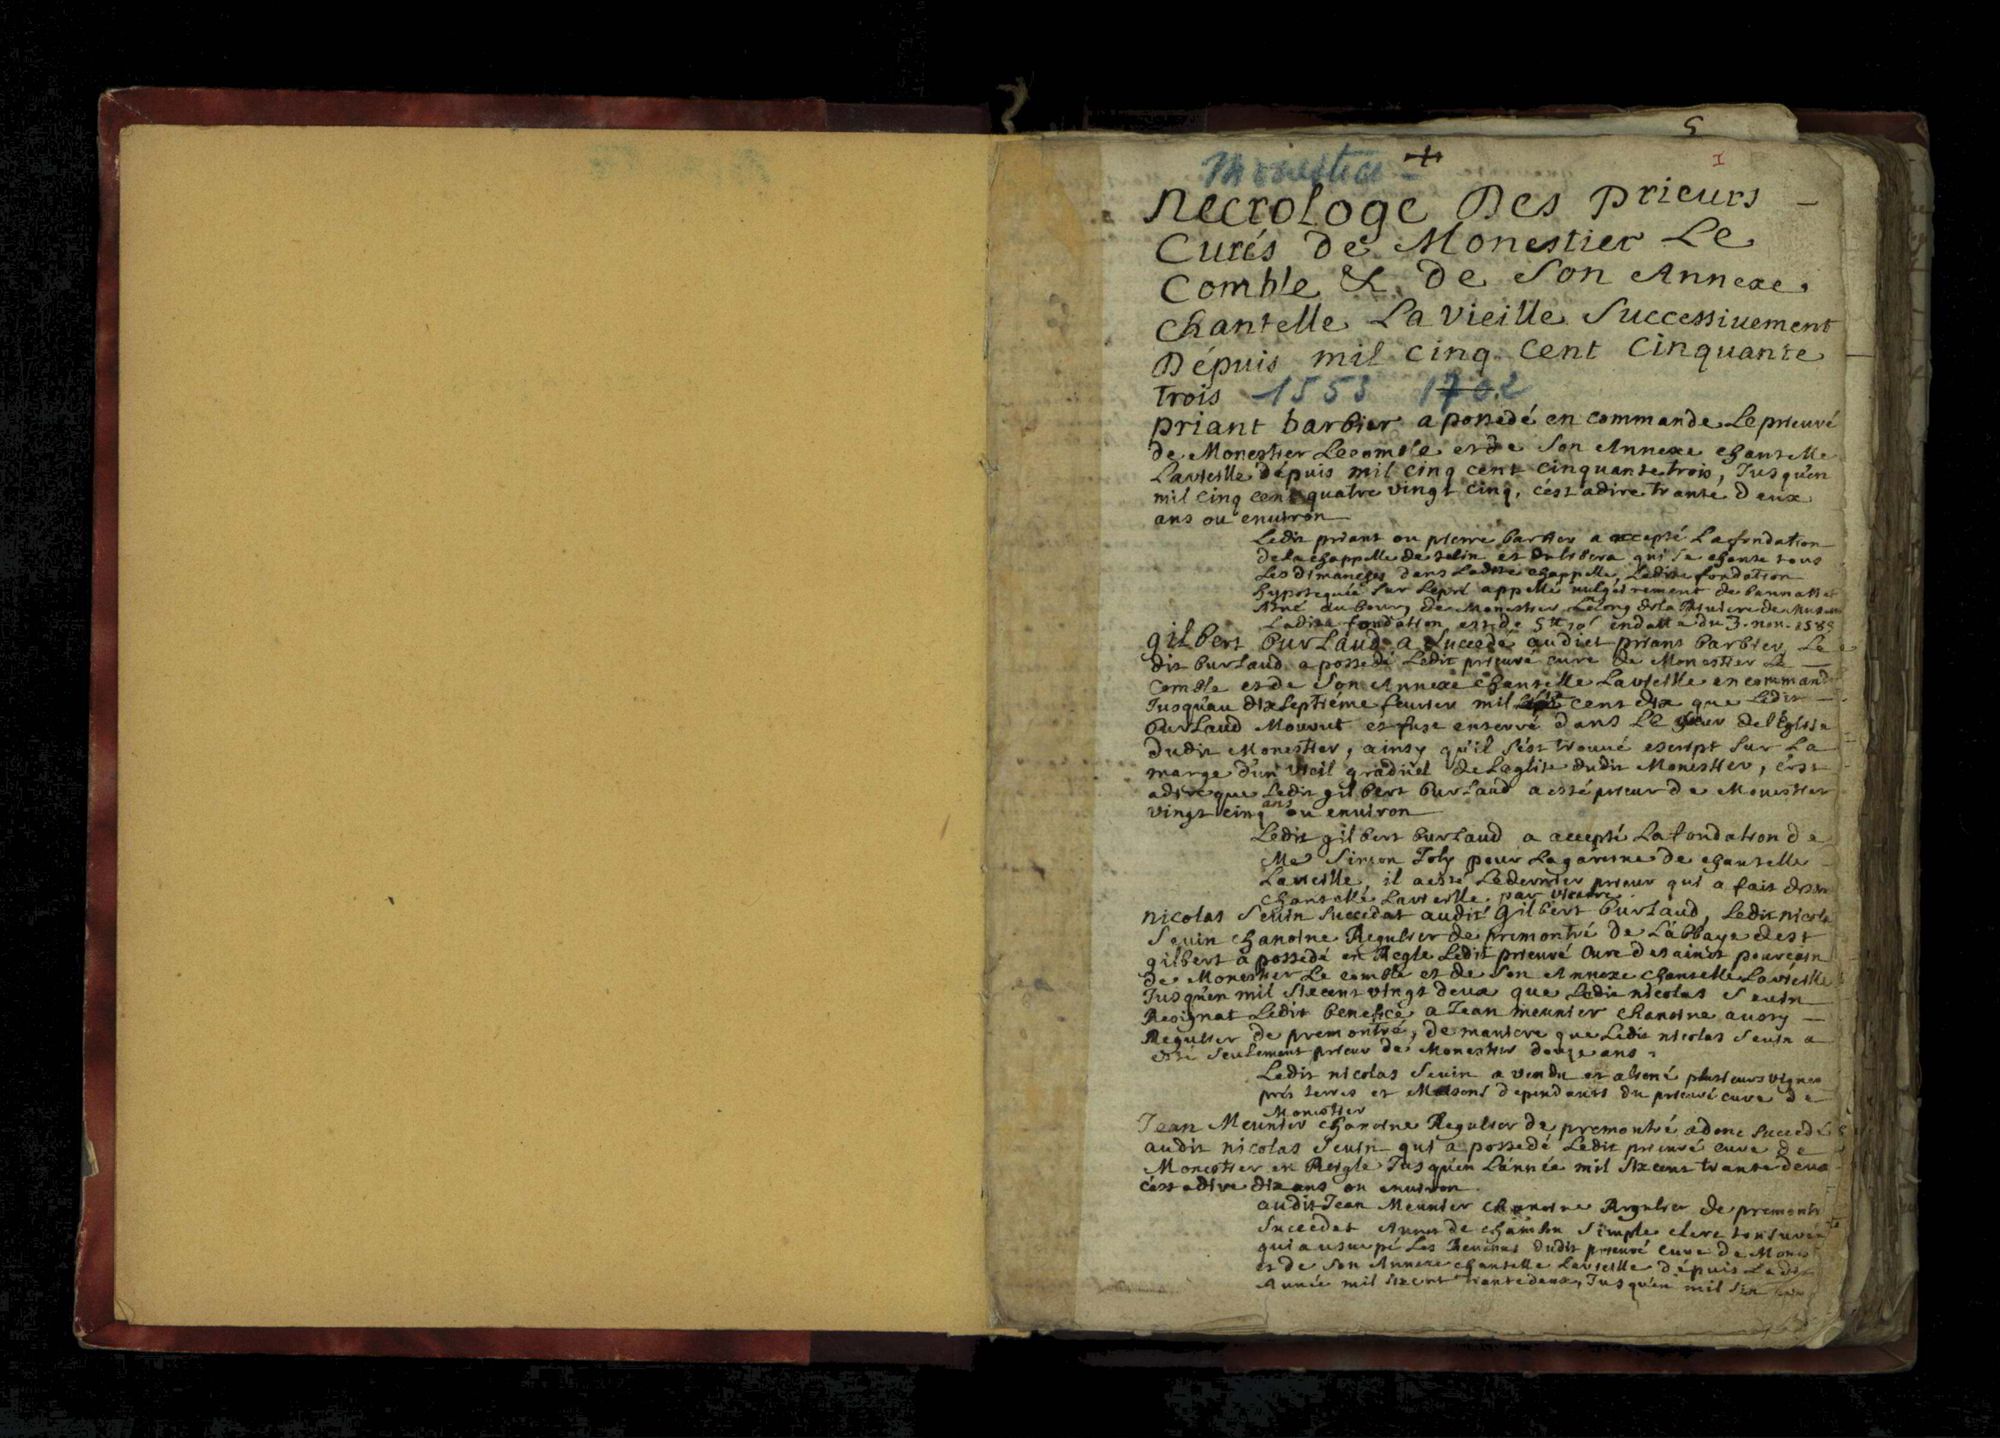 5
1
Monestier
Necrologe Des prieurs
Curés de Monestier Le
Comble & de Son Annexe
Chantelle La vieille Successiuement
Dépuis mil cinq Cent Cinquante
trois 1553 1702
priant barbier a possedé en commande Le prieuré
de Monestier Lecomble et de Son Annexe chantelle
Lavieille dépuis mil cinq cent cinquante trois, Jusqu'en
mil cinq cent quatre vingt cinq, c'est adire trante deux
ans ou enuiron
Ledit priant ou pierre barbier a accepté La fondation
de la chappelle de et du libera qui se chante tous
Les dimanches dans Ladite chappelle, Ladite fondation
hypotequée Sur Le pré appellé vulgairement de
situé au bourg de Monestier Le long de la Riuiere de
Ladite fondation est de 5tt 10s en datte du 3. nou. 1585
gilbert burlaud a Succedé audict priant barbier Le
dit burlaud a possedé Ledit prieuré cure de Monestier Le
Comble et de Son Annexe chantelle Lavieille en commande
Jusqu'au dixseptiéme feurier mil cent dix que Ledit
burlaud Mourut et fust enterré dans Le Cœur de l'Eglise
dudit Monestier, ainsy qu'il s'est trouué escript Sur La
marge d'un vieil graduel de Leglise dudit Monestier, c'est
adire que Ledit gilbert burlaud a esté prieur de Monestier
vingt cinq ans ou enuiron
Ledit gilbert burlaud a accepté La fondation de
Me Simon Joly pour La garenne de chantelle
Lavieille il a esté Le dernier prieur qui a fait
chantelle Lavieille par vicaire
nicolas Seuin Succedat audit Gilbert burlaud, Ledit nicolas
Seuin chanoine Regulier de premontré de L'abbaye de st
gilbert a possedé en Regle Ledit prieuré Cure de sainct pourçain
de Monestier Le comble et de Son Annexe chantelle Lavieille
Jusqu'en mil Sixcent vingt deux que Ledit nicolas Seuin
Resignat Ledit benefice a Jean meunier chanoine aussy
Regulier de premontré, de maniere que Ledit nicolas Seuin a
esté Seulement prieur de Monestier douze ans
Ledit nicolas Seuin a vendu et aliené plusieurs vignes
prés terres et Maisons dependants du prieuré cure de
Monestier
Jean Meunier chanoine Regulier de premontré a donc Succedé
audit nicolas Seuin qui a possedé Ledit prieuré cure de
Monestier en Reigle Jusqu'en L'année mil Sixcent trante deux
c'est adire dix ans ou enuiron
audit Jean Meunier chanoine Regulier de premontré
Succedat de chambon Simple clerc tonsuré
qui a usurpé Les Reuenus dudit prieuré cure de Monest
et de Son Annexe chantelle Lavieille dépuis Ladite
Année mil sixcent trante deux, Jusqu'en mil Six